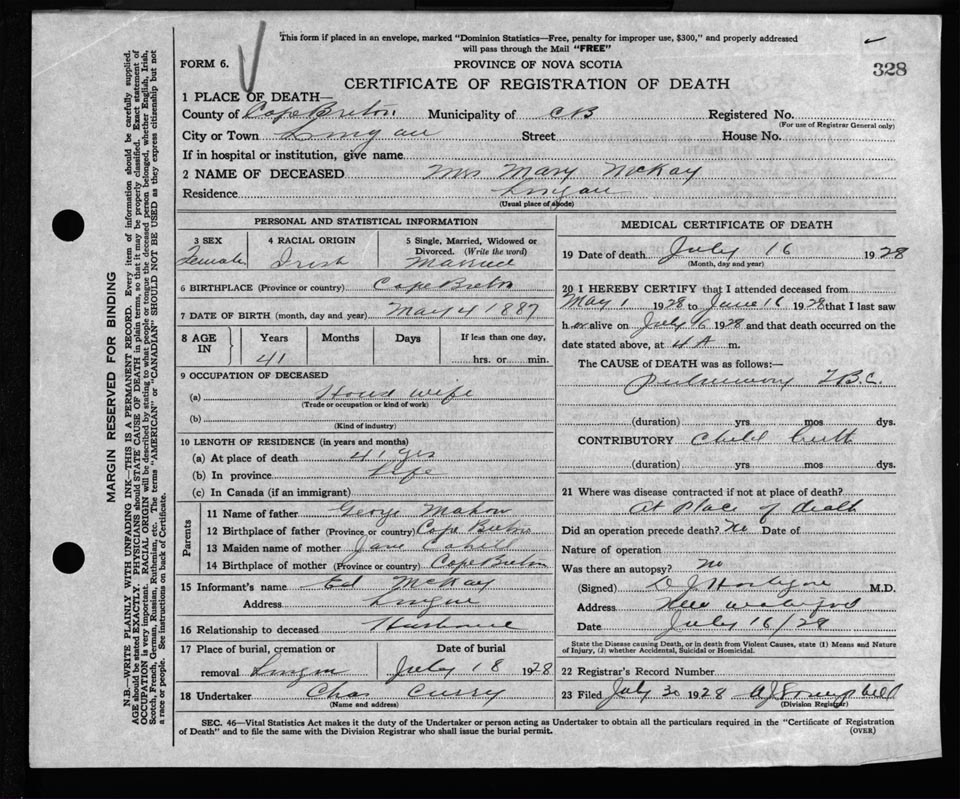 This form if placed in an envelope, marked "Dominion Statistics—Free, penalty for improper use, $300," and properly addressed
will pass through the Mail "FREE"
FORM 6.
PROVINCE OF NOVA SCOTIA
328
CERTIFICATE OF REGISTRATION OF DEATH
1 PLACE OF DEATH—
County of Cape Breton Municipality of CB Registered No.
(For use of Registrar General only)
City or Town Lingan Street House No.
If in hospital or institution, give name
2 NAME OF DECEASED Mrs Mary McKay
Residence Lingan
(Usual place of abode)
PERSONAL AND STATISTICAL INFORMATION
3 SEX 4 RACIAL ORIGIN 5 Single, Married, Widowed or
Divorced. (Write the word)
Female Irish Married
6 BIRTHPLACE (Province or country) Cape Breton
7 DATE OF BIRTH (month, day and year) May 4 1887
8 AGE IN Years Months Days If less than one day,
41 hrs. or min.
9 OCCUPATION OF DECEASED
(a) House wife
(Trade or occupation or kind of work)
(b)
(Kind of industry)
10 LENGTH OF RESIDENCE (in years and months)
(a) At place of death 41 yrs
(b) In province Life
(c) In Canada (if an immigrant)
Parents
11 Name of father George Mahon
12 Birthplace of father (Province or country) Cape Breton
13 Maiden name of mother Jane Cahill
14 Birthplace of mother (Province or country) Cape Breton
15 Informant's name Ed McKay
Address Lingan
16 Relationship to deceased Husband
17 Place of burial, cremation or Date of burial
removal Lingan July 18 1928
18 Undertaker Chas Curry
(Name and address)
MEDICAL CERTIFICATE OF DEATH
19 Date of death July 16 1928
(Month, day and year)
20 I HEREBY CERTIFY that I attended deceased from
May 1 1928 to June 16 1928 that I last saw
h er alive on July 16 1928 and that death occurred on the
date stated above, at 4 A m.
The CAUSE of DEATH was as follows:—
pulmonary T.B.C.
(duration) yrs mos dys.
CONTRIBUTORY Child birth
(duration) yrs mos dys.
21 Where was disease contracted if not at place of death?
At Place of death
Did an operation precede death? No Date of
Nature of operation
Was there an autopsy? No
(Signed) M.D.
Address New Waterford
Date July 16/28
State the Disease causing Death, or in death from Violent Causes, state (1) Means and Nature
of Injury, (2) whether Accidental, Suicidal or Homicidal.
22 Registrar's Record Number
23 Filed July 30 1928
(Division Registrar)
SEC. 46—Vital Statistics Act makes it the duty of the Undertaker or person acting as Undertaker to obtain all the particulars required in the "Certificate of Registration
of Death" and to file the same with the Division Registrar who shall issue the burial permit.
(OVER)
MARGIN RESERVED FOR BINDING
N.B.—WRITE PLAINLY WITH UNFADING INK—THIS IS A PERMANENT RECORD. Every item of information should be carefully supplied.
AGE should be stated EXACTLY. PHYSICIANS should STATE CAUSE OF DEATH in plain terms, so that it may be properly classified. Exact statement of
OCCUPATION is very important. RACIAL ORIGIN will be described by stating to what people or tongue the deceased person belonged, whether English, Irish,
Scotch, French, German, Russian, Ruthenian, etc. The terms "AMERICAN" or "CANADIAN" SHOULD NOT BE USED as they express citizenship but not
a race or people. See instructions on back of Certificate.